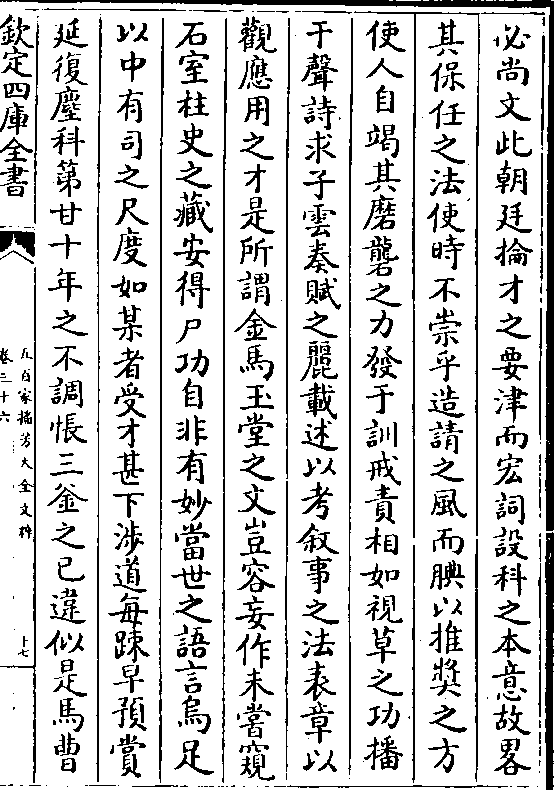 必尚文此朝廷掄才之要津而宏詞設科之本意故畧
其保任之法使時不崇乎造請之風而腆以推獎之方
使人自竭其磨礱之力發于訓戒責相如視草之功播
于聲詩求子雲奏賦之麗載述以考敘事之法表章以
觀應用之才是所謂金馬玉堂之文豈容妄作未嘗窺
石室柱史之藏安得尸功自非有妙當世之語言烏足
以中有司之尺度如某者受才甚下涉道每踈早預賞
延復塵科第甘十年之不調悵三釜之已違似是馬曹
欽定四庫全書
五百家播芳大全文粹
卷三十六
十七